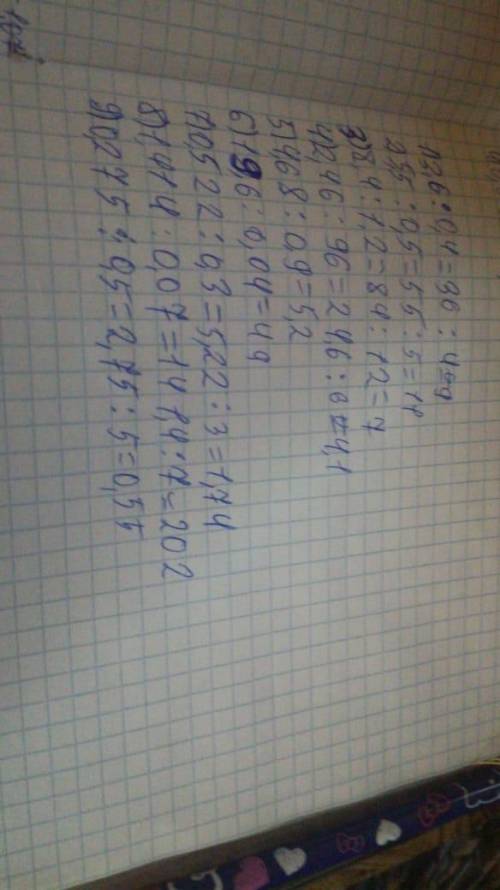 1)3,6 : 0,4 = 36 : 4 = 9
2)5,5 : 0,5 = 55 : 5 = 11
3)8,4 : 1,2 = 84 : 12 = 7
4)2,46 : 96 = 24,6 : 6 = 4,1
5)4,68 : 0,9 = 5,2
6)1,96 : 0,04 = 49
7)0,522 : 0,3 = 5,22 : 3 = 1,74
8)1,414 : 0,07 = 141,4 : 7 = 202
9)0,275 : 0,5 = 2,75 : 5 = 0,55